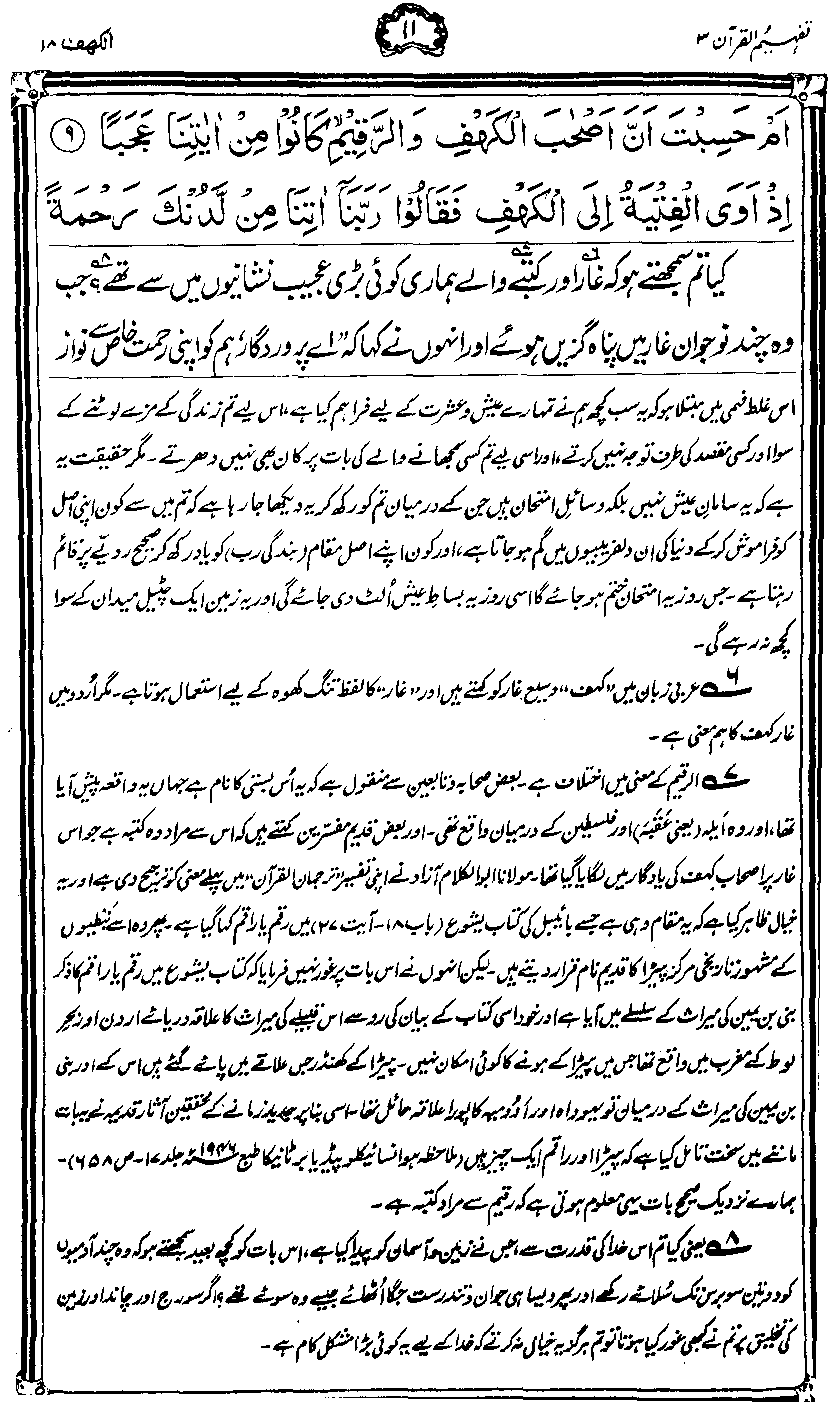 تفہیم القرآن ۳
۱۱
الکہف ۱۸
اَمْ حَسِبْتَ اَنَّ اَصْحٰبَ الْكَهْفِ وَالرَّقِيْمِ ۙ كَانُوْا مِنْ اٰيٰتِنَا عَجَبًا ۹
اِذْ اَوَى الْفِتْيَةُ اِلَى الْكَهْفِ فَقَالُوْا رَبَّنَآ اٰتِنَا مِنْ لَّدُنْكَ رَحْمَةً
کیا تم سمجھتے ہو کہ غار۶ اور کتبے۷ والے ہماری کوئی بڑی عجیب نشانیوں میں سے تھے؟۸ جب
وہ چند نوجوان غار میں پناہ گزیں ہوئے اور انہوں نے کہا کہ ”اے پروردگار، ہم کو اپنی رحمتِ خاص سے نواز
اس غلط فہمی میں مبتلا ہو کہ یہ سب کچھ ہم نے تمہارے عیش و عشرت کے لیے فراہم کیا ہے، اس لیے تم زندگی کے مزے لوٹنے کے
سوا اور کسی مقصد کی طرف توجہ نہیں کرتے، اور اسی لیے تم کسی سمجھانے والے کی بات پر کان بھی نہیں دھرتے۔ مگر حقیقت یہ
ہے کہ یہ سامانِ عیش نہیں بلکہ وسائلِ امتحان ہیں جن کے درمیان تم کو رکھ کر یہ دیکھا جا رہا ہے کہ تم میں سے کون اپنی اصل
کو فراموش کر کے دنیا کی ان دلفریبیوں میں گم ہو جاتا ہے، اور کون اپنے اصل مقام (بندگی رب) کو یاد رکھ کر صحیح رویّے پر قائم
رہتا ہے۔ جس روز یہ امتحان ختم ہو جائے گا اسی روز یہ بساطِ عیش اُلٹ دی جائے گی اور یہ زمین ایک چٹیل میدان کے سوا
کچھ نہ رہے گی۔
۶ عربی زبان میں ”کہف“ وسیع غار کو کہتے ہیں اور ”غار“ کا لفظ تنگ کھوہ کے لیے استعمال ہوتا ہے۔ مگر اُردو میں
غار کہف کا ہم معنی ہے۔
۷ الرقیم کے معنی میں اختلاف ہے۔ بعض صحابہ و تابعین سے منقول ہے کہ یہ اُس بستی کا نام ہے جہاں یہ واقعہ پیش آیا
تھا، اور وہ اَیلہ (یعنی عَقَبَہ) اور فلسطین کے درمیان واقع تھی۔ اور بعض قدیم مفسّرین کہتے ہیں کہ اس سے مراد وہ کتبہ ہے جو اس
غار پر اصحاب کہف کی یادگار میں لگایا گیا تھا۔ مولانا ابوالکلام آزاد نے اپنی تفسیر ”ترجمان القرآن“ میں پہلے معنی کو ترجیح دی ہے اور یہ
خیال ظاہر کیا ہے کہ یہ مقام وہی ہے جسے بائیبل کی کتاب یشوع (باب ۱۸۔ آیت ۲۷) میں رقم یا راقم کہا گیا ہے۔ پھر وہ اسے نَبطیوں
کے مشہور تاریخی مرکز پیٹرا کا قدیم نام قرار دیتے ہیں۔ لیکن انہوں نے اس بات پر غور نہیں فرمایا کہ کتاب یشوع میں رقم یا راقم کا ذکر
بنی بن یمین کی میراث کے سلسلے میں آیا ہے اور خود اسی کتاب کے بیان کی رو سے اس قبیلے کی میراث کا علاقہ دریائے اردن اور بحرِ
لوط کے مغرب میں واقع تھا جس میں پیٹرا کے ہونے کا کوئی امکان نہیں۔ پیٹرا کے کھنڈر جس علاقے میں پائے گئے ہیں اس کے اور بنی
بن یمین کی میراث کے درمیان تو یہوداہ اور اَدُومیہ کا پورا علاقہ حائل تھا۔ اسی بنا پر جدید زمانے کے محققین آثارِ قدیمہ نے یہ بات
ماننے میں سخت تامل کیا ہے کہ پیٹرا اور راقم ایک چیز ہیں (ملاحظہ ہو انسائیکلوپیڈیا برٹانیکا طبع ۱۹۴۶ء جلد ۱۷۔ ص ۶۵۸)۔
ہمارے نزدیک صحیح بات یہی معلوم ہوتی ہے کہ رقیم سے مراد کتبہ ہے۔
۸ یعنی کیا تم اس خدا کی قدرت سے، جس نے زمین و آسمان کو پیدا کیا ہے، اس بات کو کچھ بعید سمجھتے ہو کہ وہ چند آدمیوں
کو دو تین سو برس تک سُلائے رکھے اور پھر ویسا ہی جوان و تندرست جگا اُٹھائے جیسے وہ سوئے تھے؟ اگر سورج اور چاند اور زمین
کی تخلیق پر تم نے کبھی غور کیا ہوتا تو تم ہرگز یہ خیال نہ کرتے کہ خدا کے لیے یہ کوئی بڑا مشکل کام ہے۔